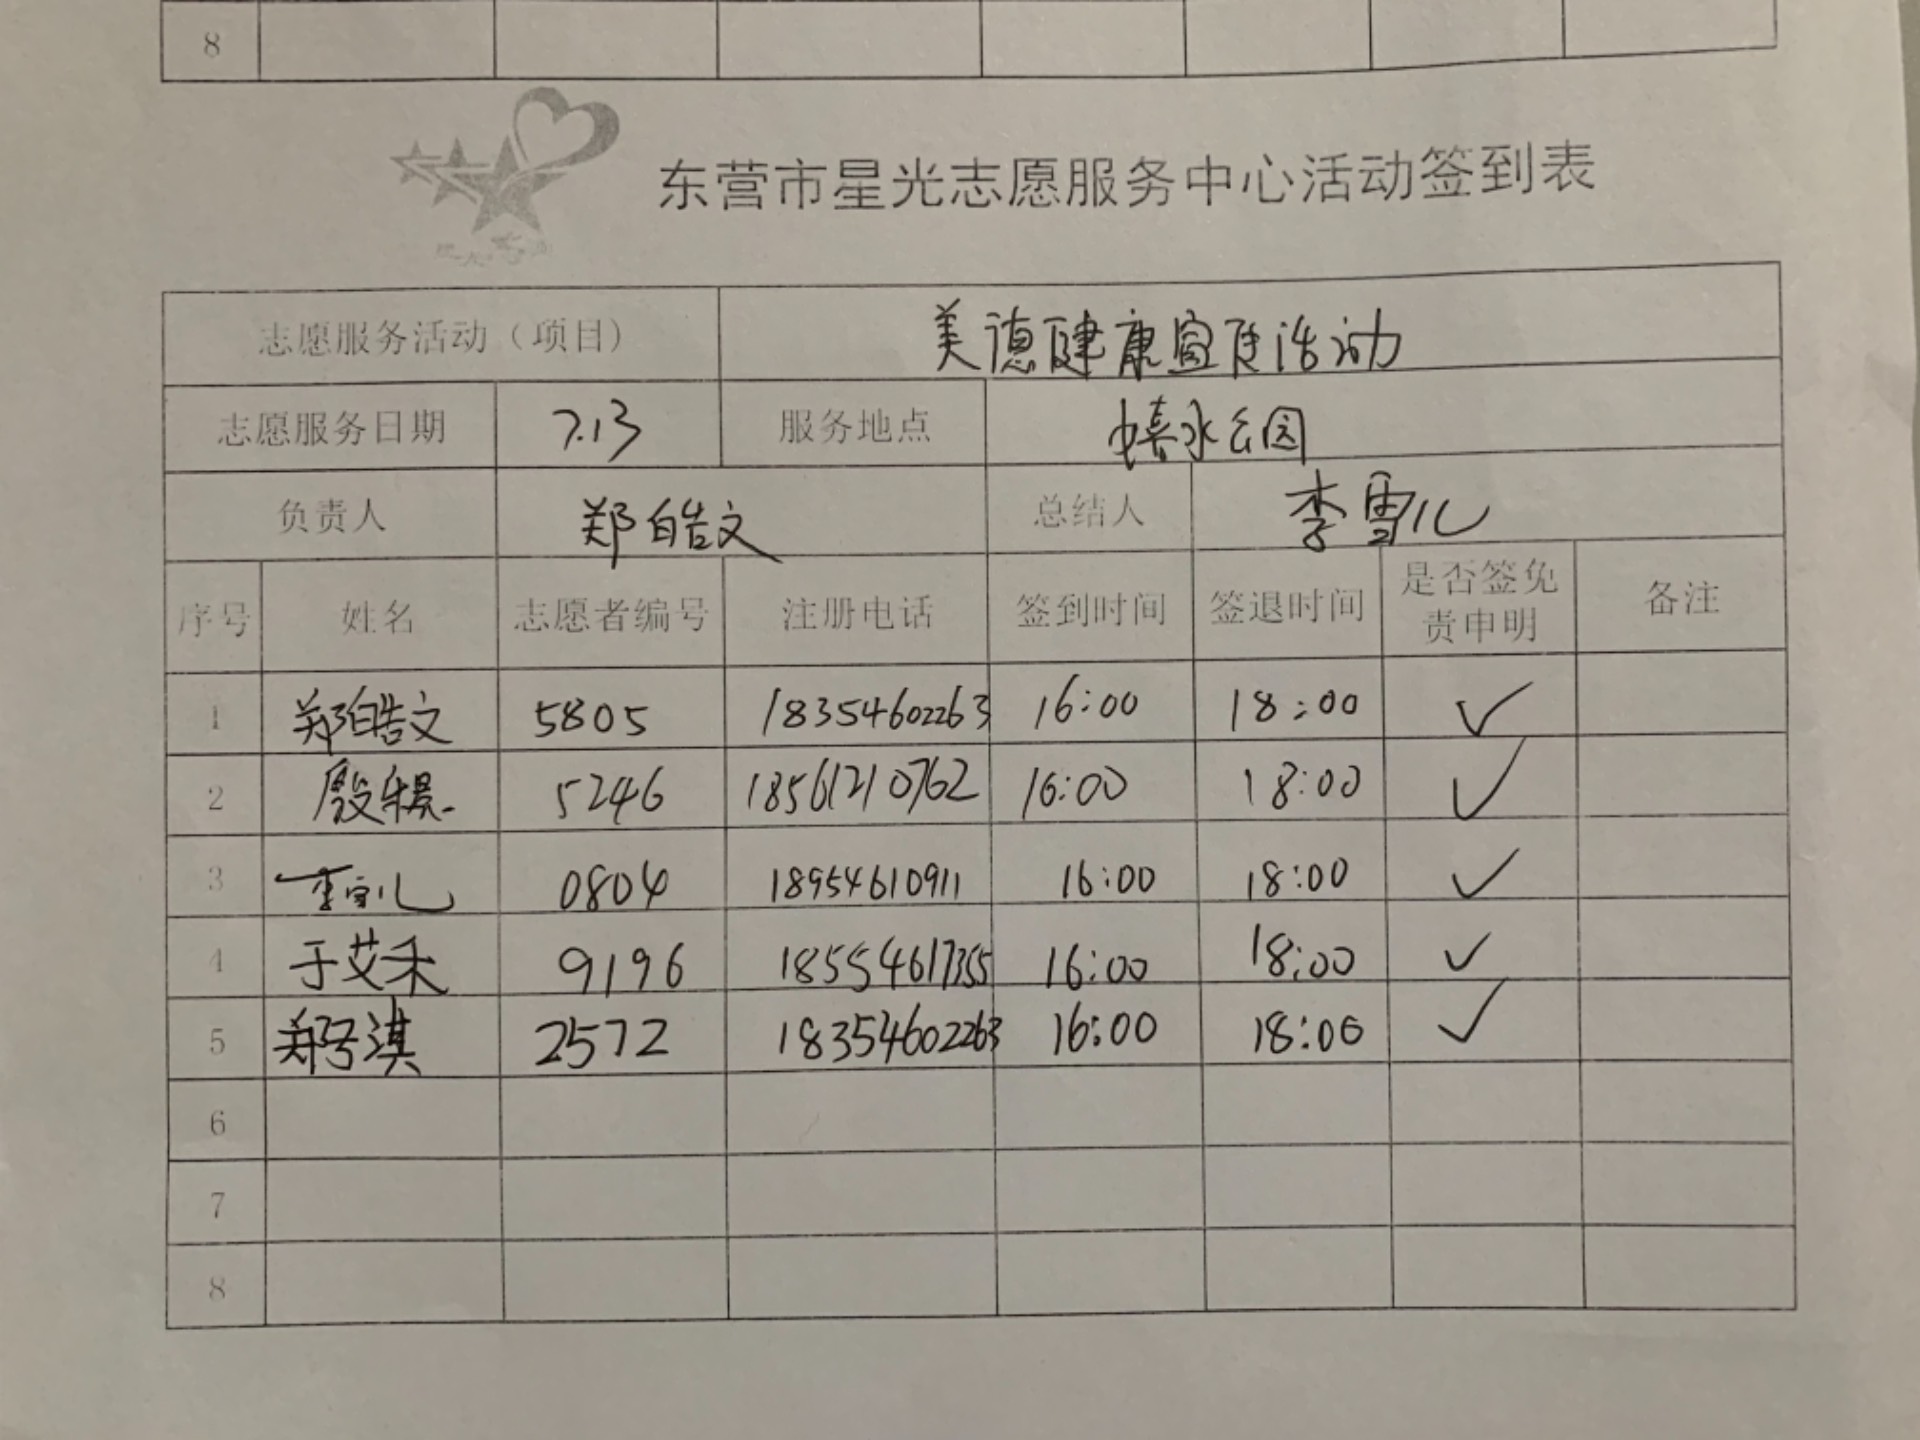 8
东营市星光志愿服务中心活动签到表
志愿服务活动（项目） 美德健康宣传活动
志愿服务日期 7.13 服务地点 嬉水公园
负责人 郑皓文 总结人 李雪儿
序号 姓名 志愿者编号 注册电话 签到时间 签退时间 是否签免责申明 备注
1 郑皓文 5805 18354602263 16:00 18:00 ✓
2 殷 5246 18561210762 16:00 18:00 ✓
3 李雪儿 0804 18954610911 16:00 18:00 ✓
4 于艾禾 9196 18554617355 16:00 18:00 ✓
5 郑号淇 2572 18354602263 16:00 18:00 ✓
6
7
8